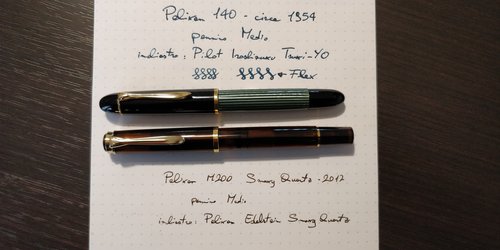 Pelikan 140 - circa 1954
pennino Medio
inchiostro: Pilot Iroshizuku Tsuki-Yo
Flex
Pelikan M200 Smoky Quartz - 2017
pennino Medio
inchiostro: Pelikan Edelstein Smoky Quartz